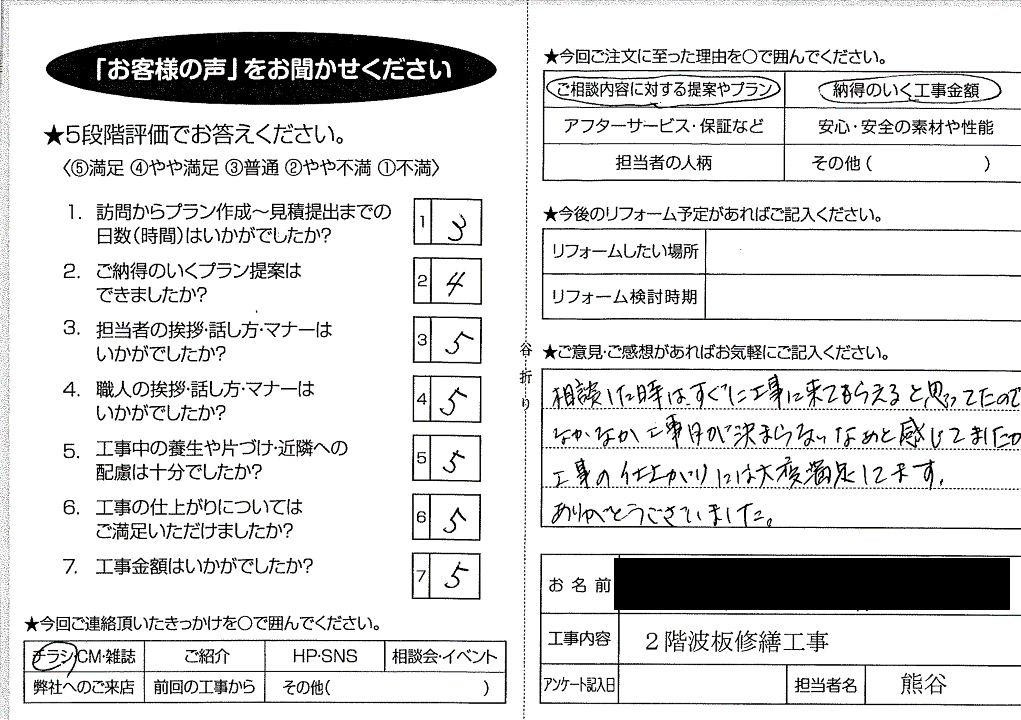 「お客様の声」をお聞かせください
★5段階評価でお答えください。
〈⑤満足 ④やや満足 ③普通 ②やや不満 ①不満〉
1. 訪問からプラン作成〜見積提出までの
日数(時間)はいかがでしたか?
1 3
2. ご納得のいくプラン提案は
できましたか?
2 4
3. 担当者の挨拶・話し方・マナーは
いかがでしたか?
3 5
4. 職人の挨拶・話し方・マナーは
いかがでしたか?
4 5
5. 工事中の養生や片づけ・近隣への
配慮は十分でしたか?
5 5
6. 工事の仕上がりについては
ご満足いただけましたか?
6 5
7. 工事金額はいかがでしたか?
7 5
★今回ご連絡頂いたきっかけを〇で囲んでください。
チラシ・CM・雑誌 ご紹介 HP・SNS 相談会・イベント
弊社へのご来店 前回の工事から その他( )
谷折り
★今回ご注文に至った理由を〇で囲んでください。
ご相談内容に対する提案やプラン 納得のいく工事金額
アフターサービス・保証など 安心・安全の素材や性能
担当者の人柄 その他( )
★今後のリフォーム予定があればご記入ください。
リフォームしたい場所
リフォーム検討時期
★ご意見・ご感想があればお気軽にご記入ください。
相談した時はすぐに工事に来てもらえると思ってたので
なかなか工事日が決まらないなぁと感じてましたが
工事の仕上がりには大変満足してます。
ありがとうございました。
お名前
工事内容 2階波板修繕工事
アンケート記入日 担当者名 熊谷